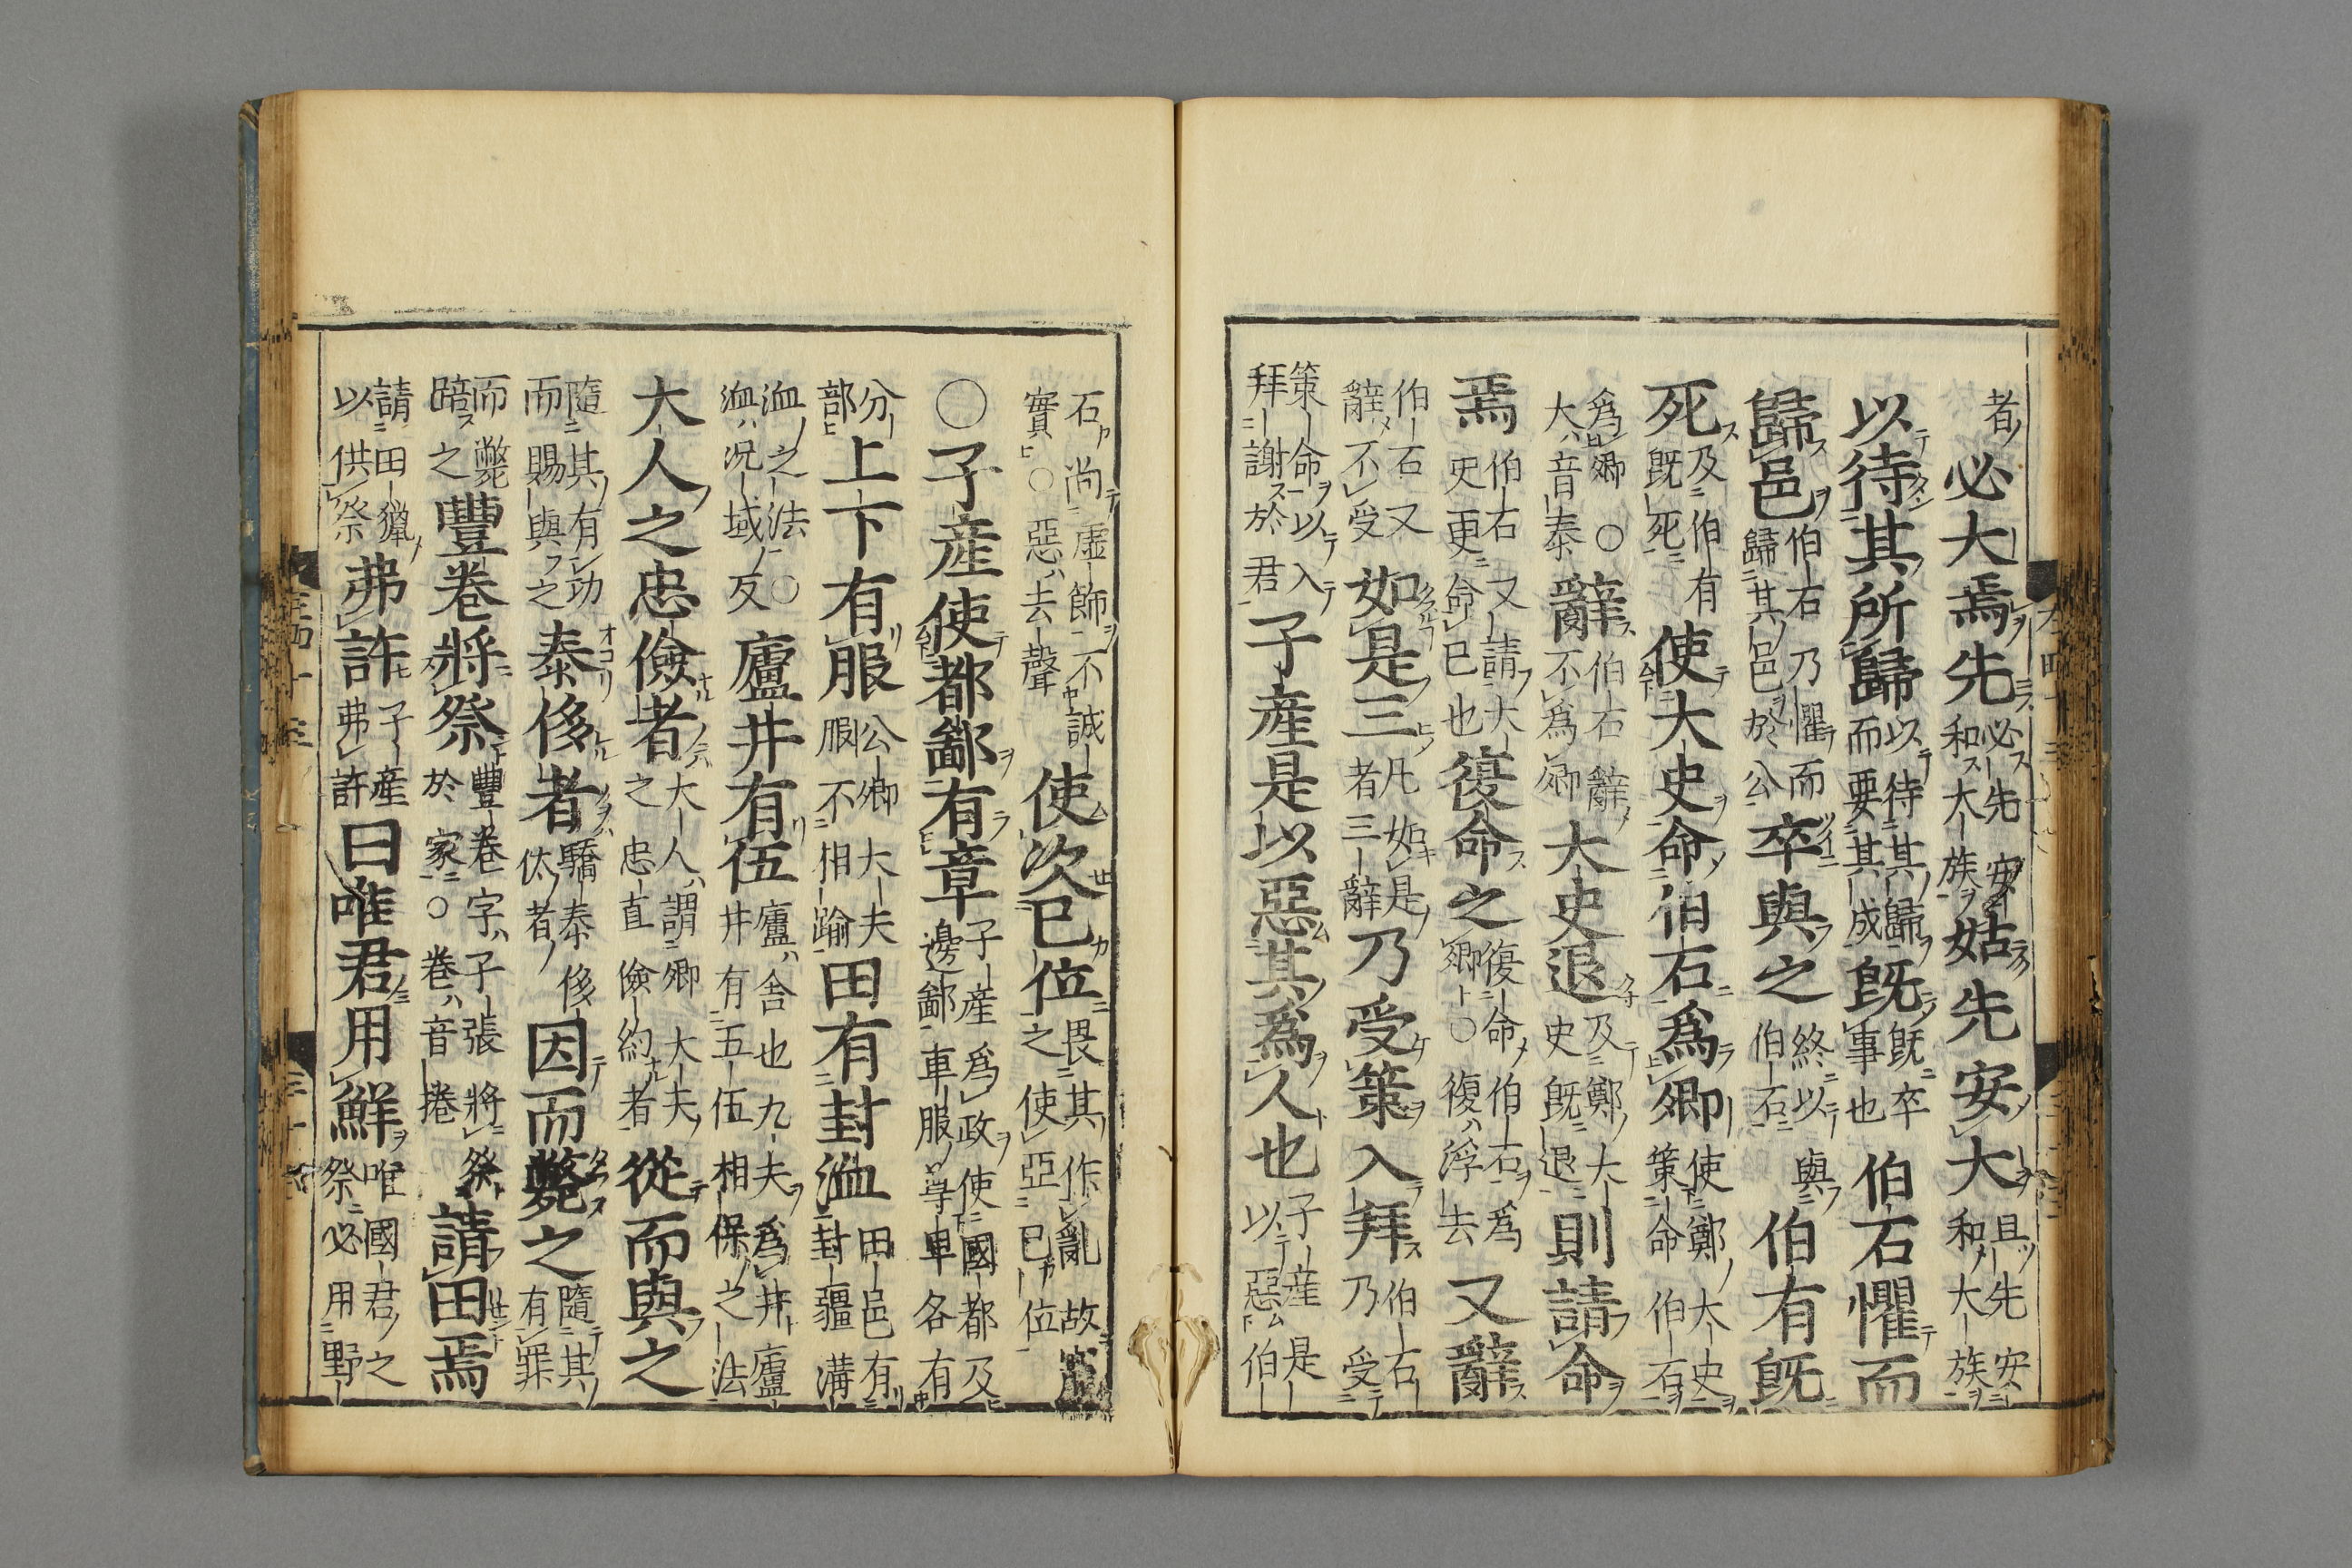 者必大焉先必先安和大族姑先安大且先安和大族
以待其所歸以待其歸而要其成既既卒事也伯石懼而
歸邑伯石乃懼而歸其邑於公卒與之終以與伯石伯有既
死及伯有既死使大史命伯石爲卿使鄭大史策命伯石
爲卿○大音泰辭伯石辭不爲卿大史退及鄭大史既退則請命
焉伯石又請大史更命已也復命之復命伯石爲卿○復浮去又辭
伯石又辭不受如是三凡如是者三辭乃受策入拜伯石乃受
策命以入拜謝於君子産是以惡其爲人也子産是以惡伯
石尚虛飾不誠實○惡去聲使次已位畏其作亂故寵之使亞已位
○子産使都鄙有章子産爲政使國都及邊鄙車服尊卑各有
分部上下有服公卿大夫服不相踰田有封洫田邑有封疆溝
洫洫之法○洫況域反廬井有伍廬舍也九夫爲井廬井有五伍相保之法
大人之忠儉者大人謂卿大夫之忠直儉約者從而與之
隨其有功而賜與之泰侈者驕泰侈汰者因而斃之隨其有罪
而斃踣之豐卷將祭豐卷字子張將祭於家○卷音捲請田焉
請田獵以供祭弗許子産弗許曰唯君用鮮唯國君之祭必用野